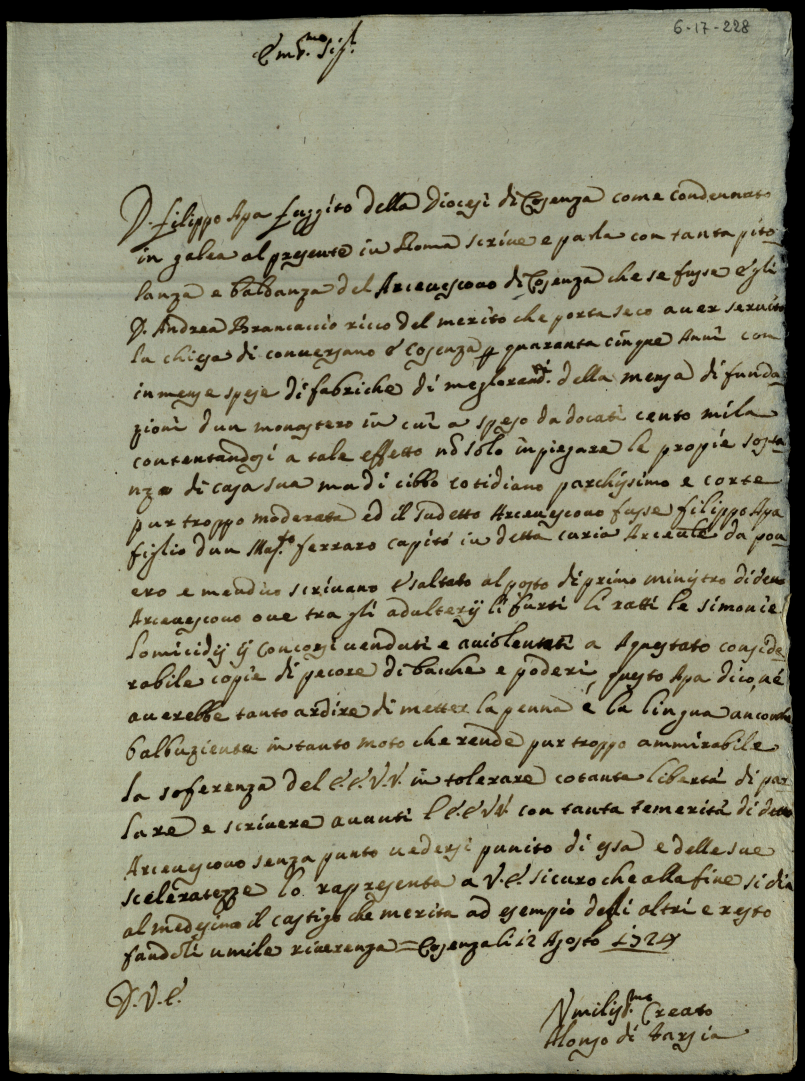 6-17-228
Em.mo Sig.r
D. Filippo Apa fuggito della Diocesi di Cosenza come condennato
in galea al presente in Roma scrive e parla con tanta pito
lanza e baldanza del Arcevescovo di Cosenza che se fusse egli
D. Andrea Brancaccio ricco del merito che porta seco aver servito
la chiesa di conversano e Cosenza p quaranta cinque Anni con
inmense spese di fabriche di megloram.ti della mensa di funda
zioni dun monastero in cui a speso da docati cento mila
contentandosi a tale effetto nō solo inpiegare le propie sosta
nze di casa sua ma di cibbo cotidiano parchissimo e corte
pur troppo moderata ed il sudetto Arcevescovo fusse Filippo Apa
figlio dun Mas.to ferraro capitò in detta curia Arcevle da pov
ero e mendico scrivano esaltato al posto di primo ministro di detto
Arcevescovo ove tra gli adulterij li furti li ratti le simonie
lomicidij ij Concorsi venduti e aviolentati a Aquistato conside
rabile copie di pecore di bacche e poderi questo Apa dico, nè
averebbe tanto ardire di metter la penna é la lingua ancorche
balbuziente in tanto moto che rende pur troppo ammirabile
la soferenza del E.E.V.V. in tolerare cotanta libertá di par
lare e scrivere avanti l E.E.V.V. con tanta temerità di detto
Arcevescovo senza punto vedersi punito di esa e delle sue
sceleratezze lo rapresento a V.E. sicuro che alla fine si dia
al medesimo il castigo che merita ad esempio delli altri e resto
fandoli umile riverenza = Cosenza li 12 Agosto 1724
D. V. E.
Vmiliss.mo Creato
Alonso di Tarsia